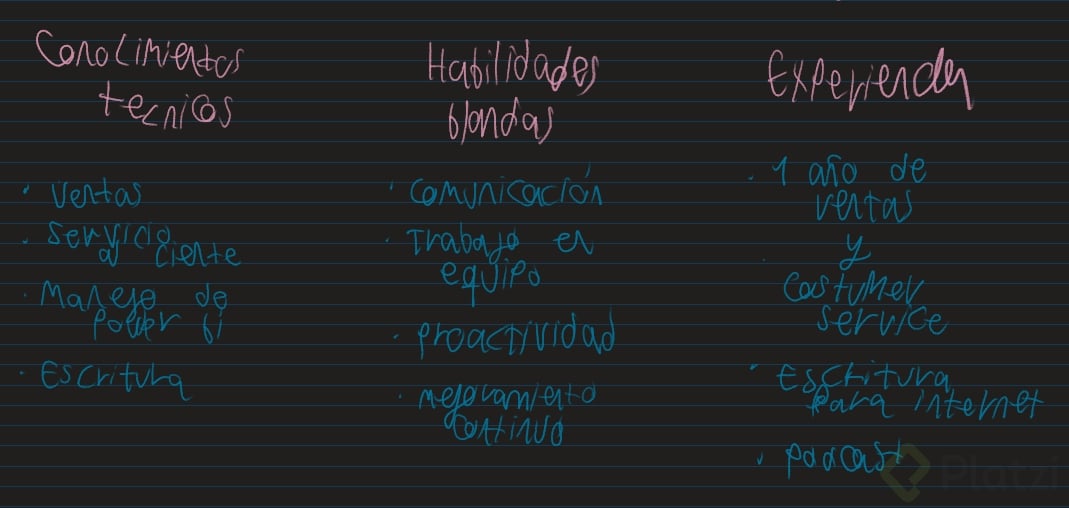 Conocimientos
tecnicos
• Ventas
• Servicio
al ciente
• Manejo de
Power bi
• Escritura
Habilidades
blandas
• Comunicación
• Trabajo en
equipo
• proactividad
• mejoramiento
continuo
Experiencia
• 1 año de
ventas
y
Costumer
service
• Escritura
para internet
• podcast
Platzi